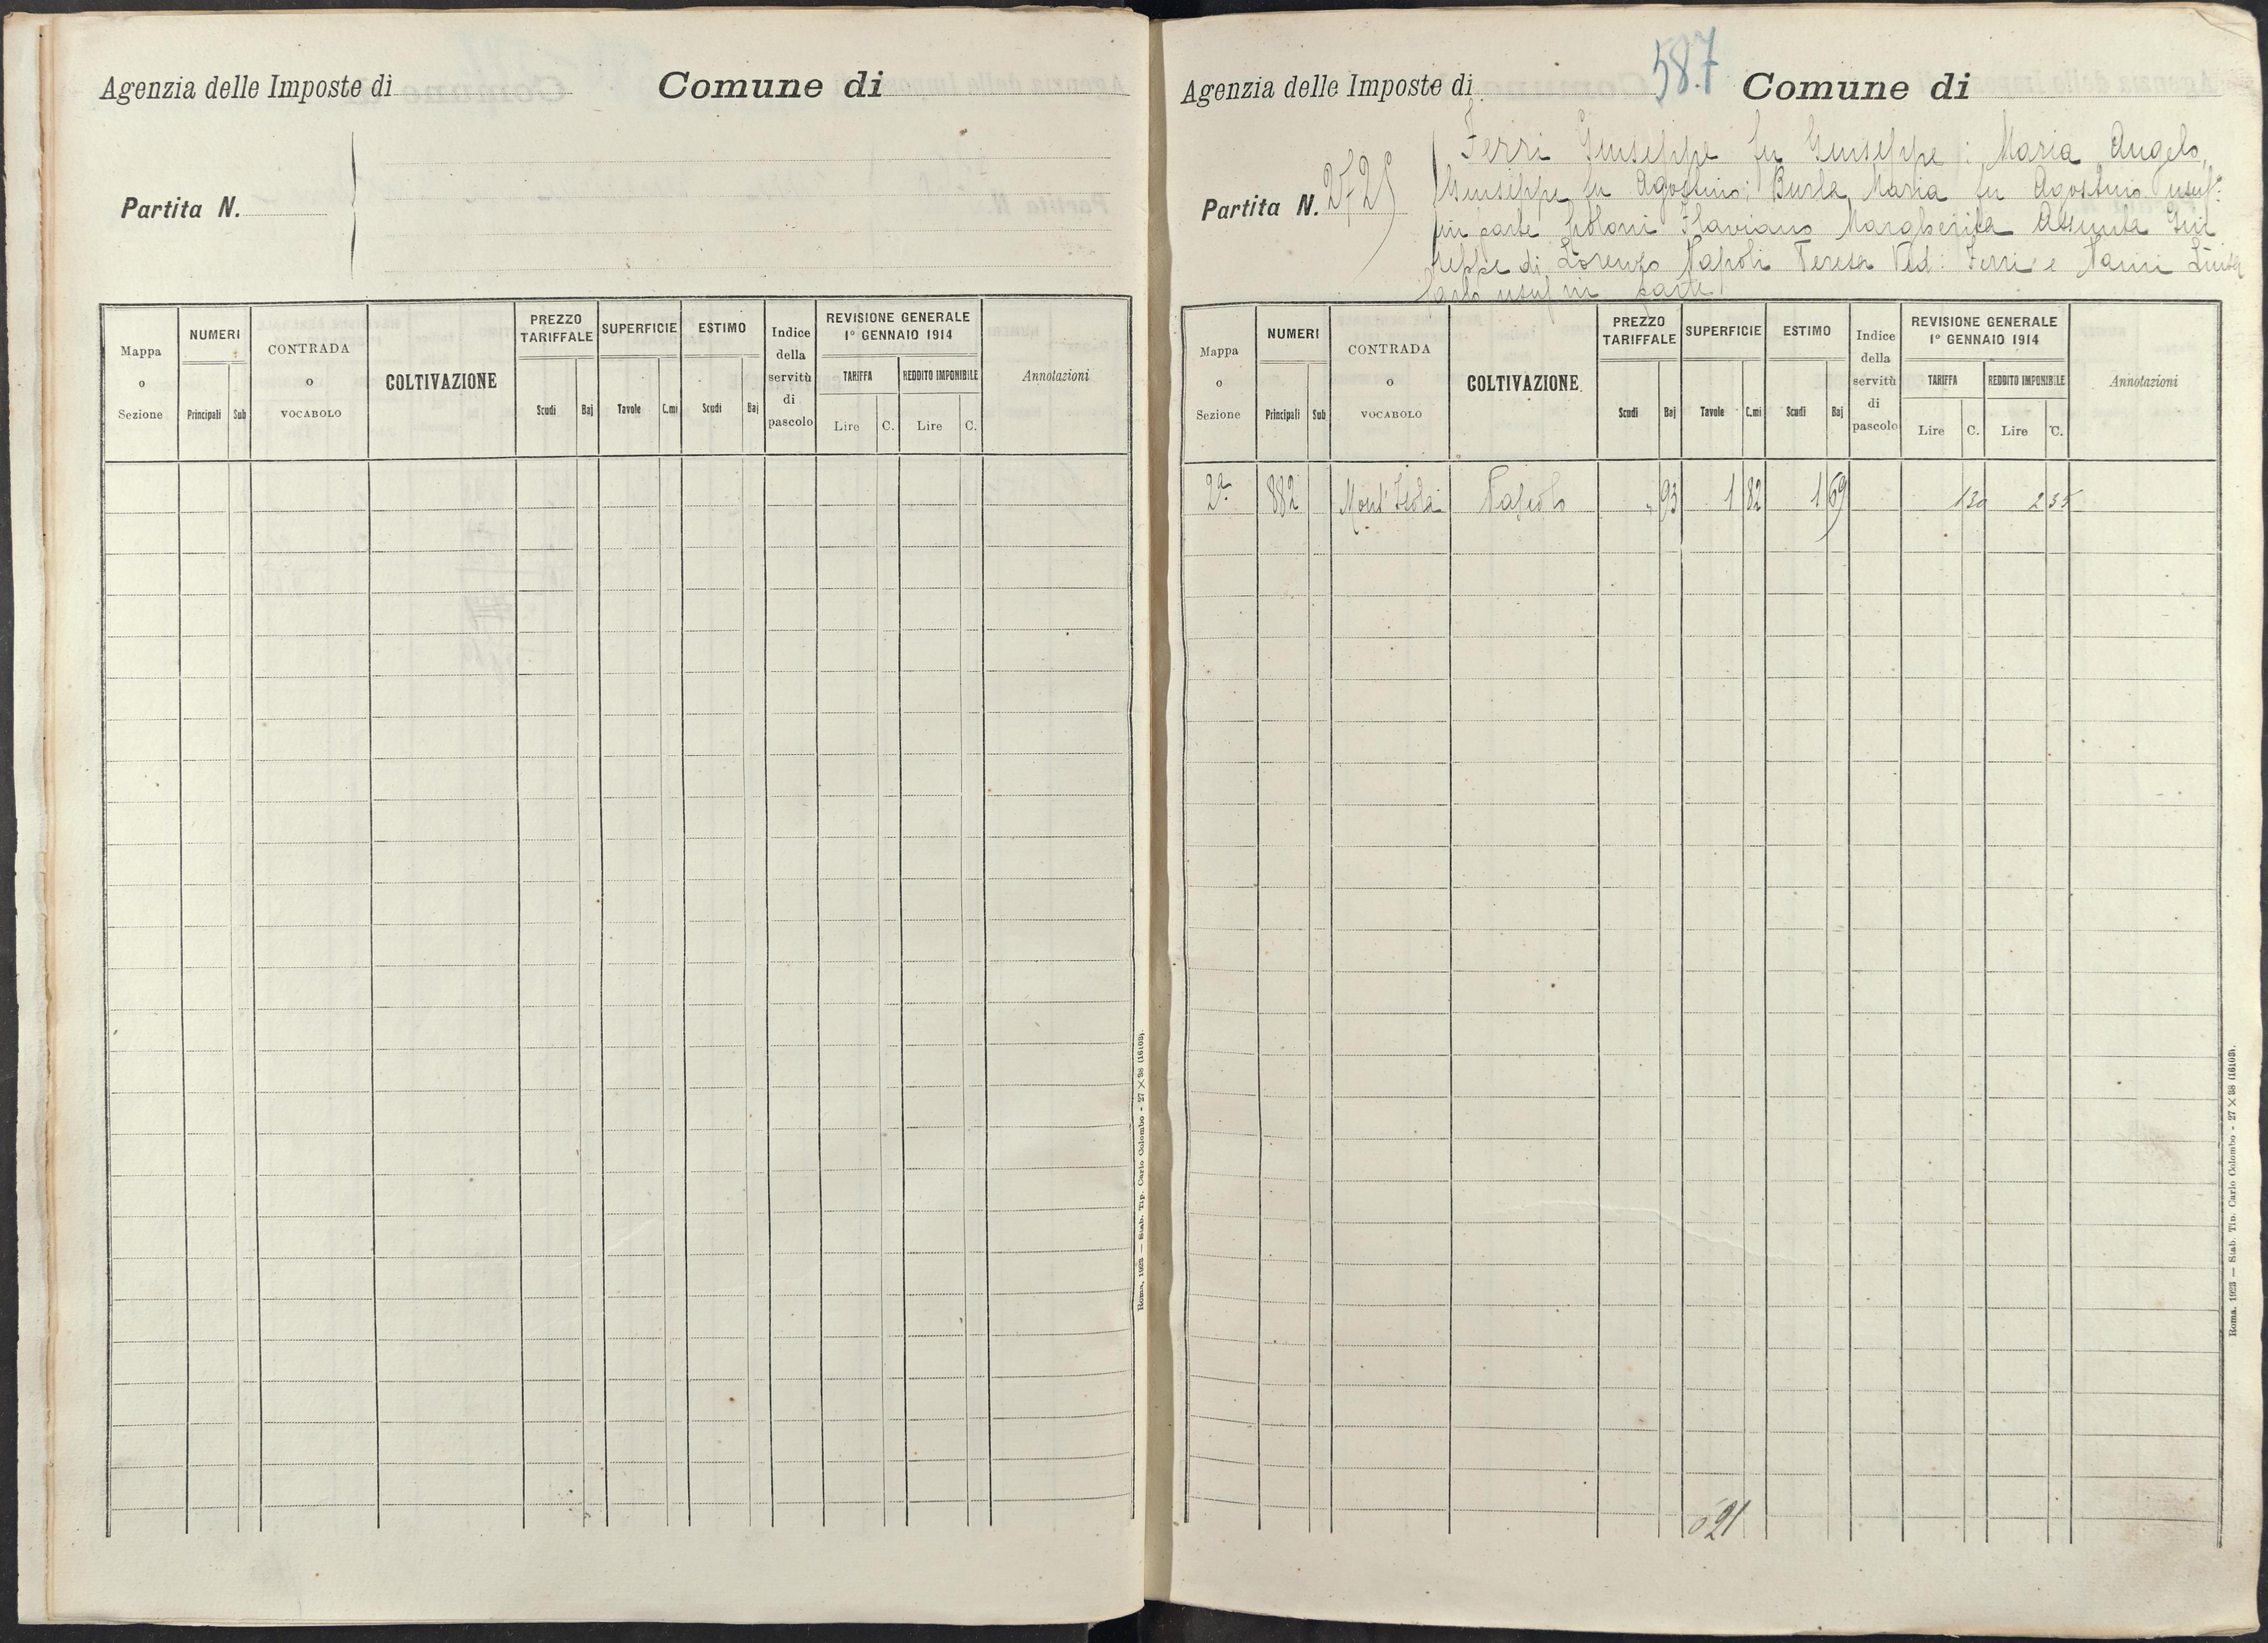 Agenzia delle Imposte di Comune di
Partita N.
Mappa o Sezione
NUMERI
Principali Sub
CONTRADA o VOCABOLO
COLTIVAZIONE
PREZZO TARIFFALE
Scudi Baj
SUPERFICIE
Tavole C.mi
ESTIMO
Scudi Baj
Indice della servitù di pascolo
REVISIONE GENERALE
1º GENNAIO 1914
TARIFFA REDDITO IMPONIBILE
Lire C. Lire C.
Annotazioni
Roma, 1923 — Stab. Tip. Carlo Colombo - 27 × 38 (16103).
587
Agenzia delle Imposte di Comune di
Partita N.
Ferri Giuseppe fu Giuseppe : Maria Angelo,
Giuseppe fu Agostino; Burla Maria fu Agostino usuf:
in parte Flaviano Margherita Assunta Giu
seppe di Lorenzo Napoli Teresa Ved: Ferri e Nanni Luisa
usuf in parte
Mappa o Sezione
NUMERI
Principali Sub
CONTRADA o VOCABOLO
COLTIVAZIONE
PREZZO TARIFFALE
Scudi Baj
SUPERFICIE
Tavole C.mi
ESTIMO
Scudi Baj
Indice della servitù di pascolo
REVISIONE GENERALE
1º GENNAIO 1914
TARIFFA REDDITO IMPONIBILE
Lire C. Lire C.
Annotazioni
2ª 882 Mont' Isola Pascolo 93 1 82 1 69 130 2 35
621
Roma, 1923 — Stab. Tip. Carlo Colombo - 27 × 38 (16103).